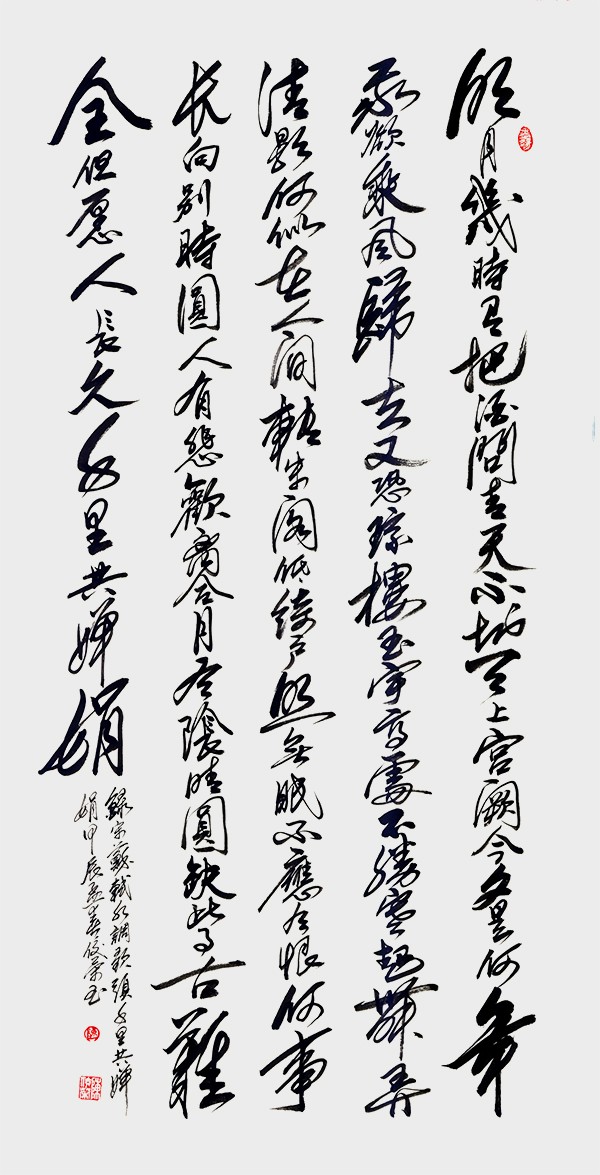 明月幾時有把酒問青天不知天上宮闕今夕是何年
我欲乘風歸去又恐瓊樓玉宇高處不勝寒起舞弄
清影何似在人间轉朱阁低綺户照無眠不應有恨何事
长向别時圓人有悲歡離合月有陰晴圓缺此事古難
全但愿人長久千里共嬋娟
錄宋蘇軾水調歌頭千里共嬋
娟甲辰孟春